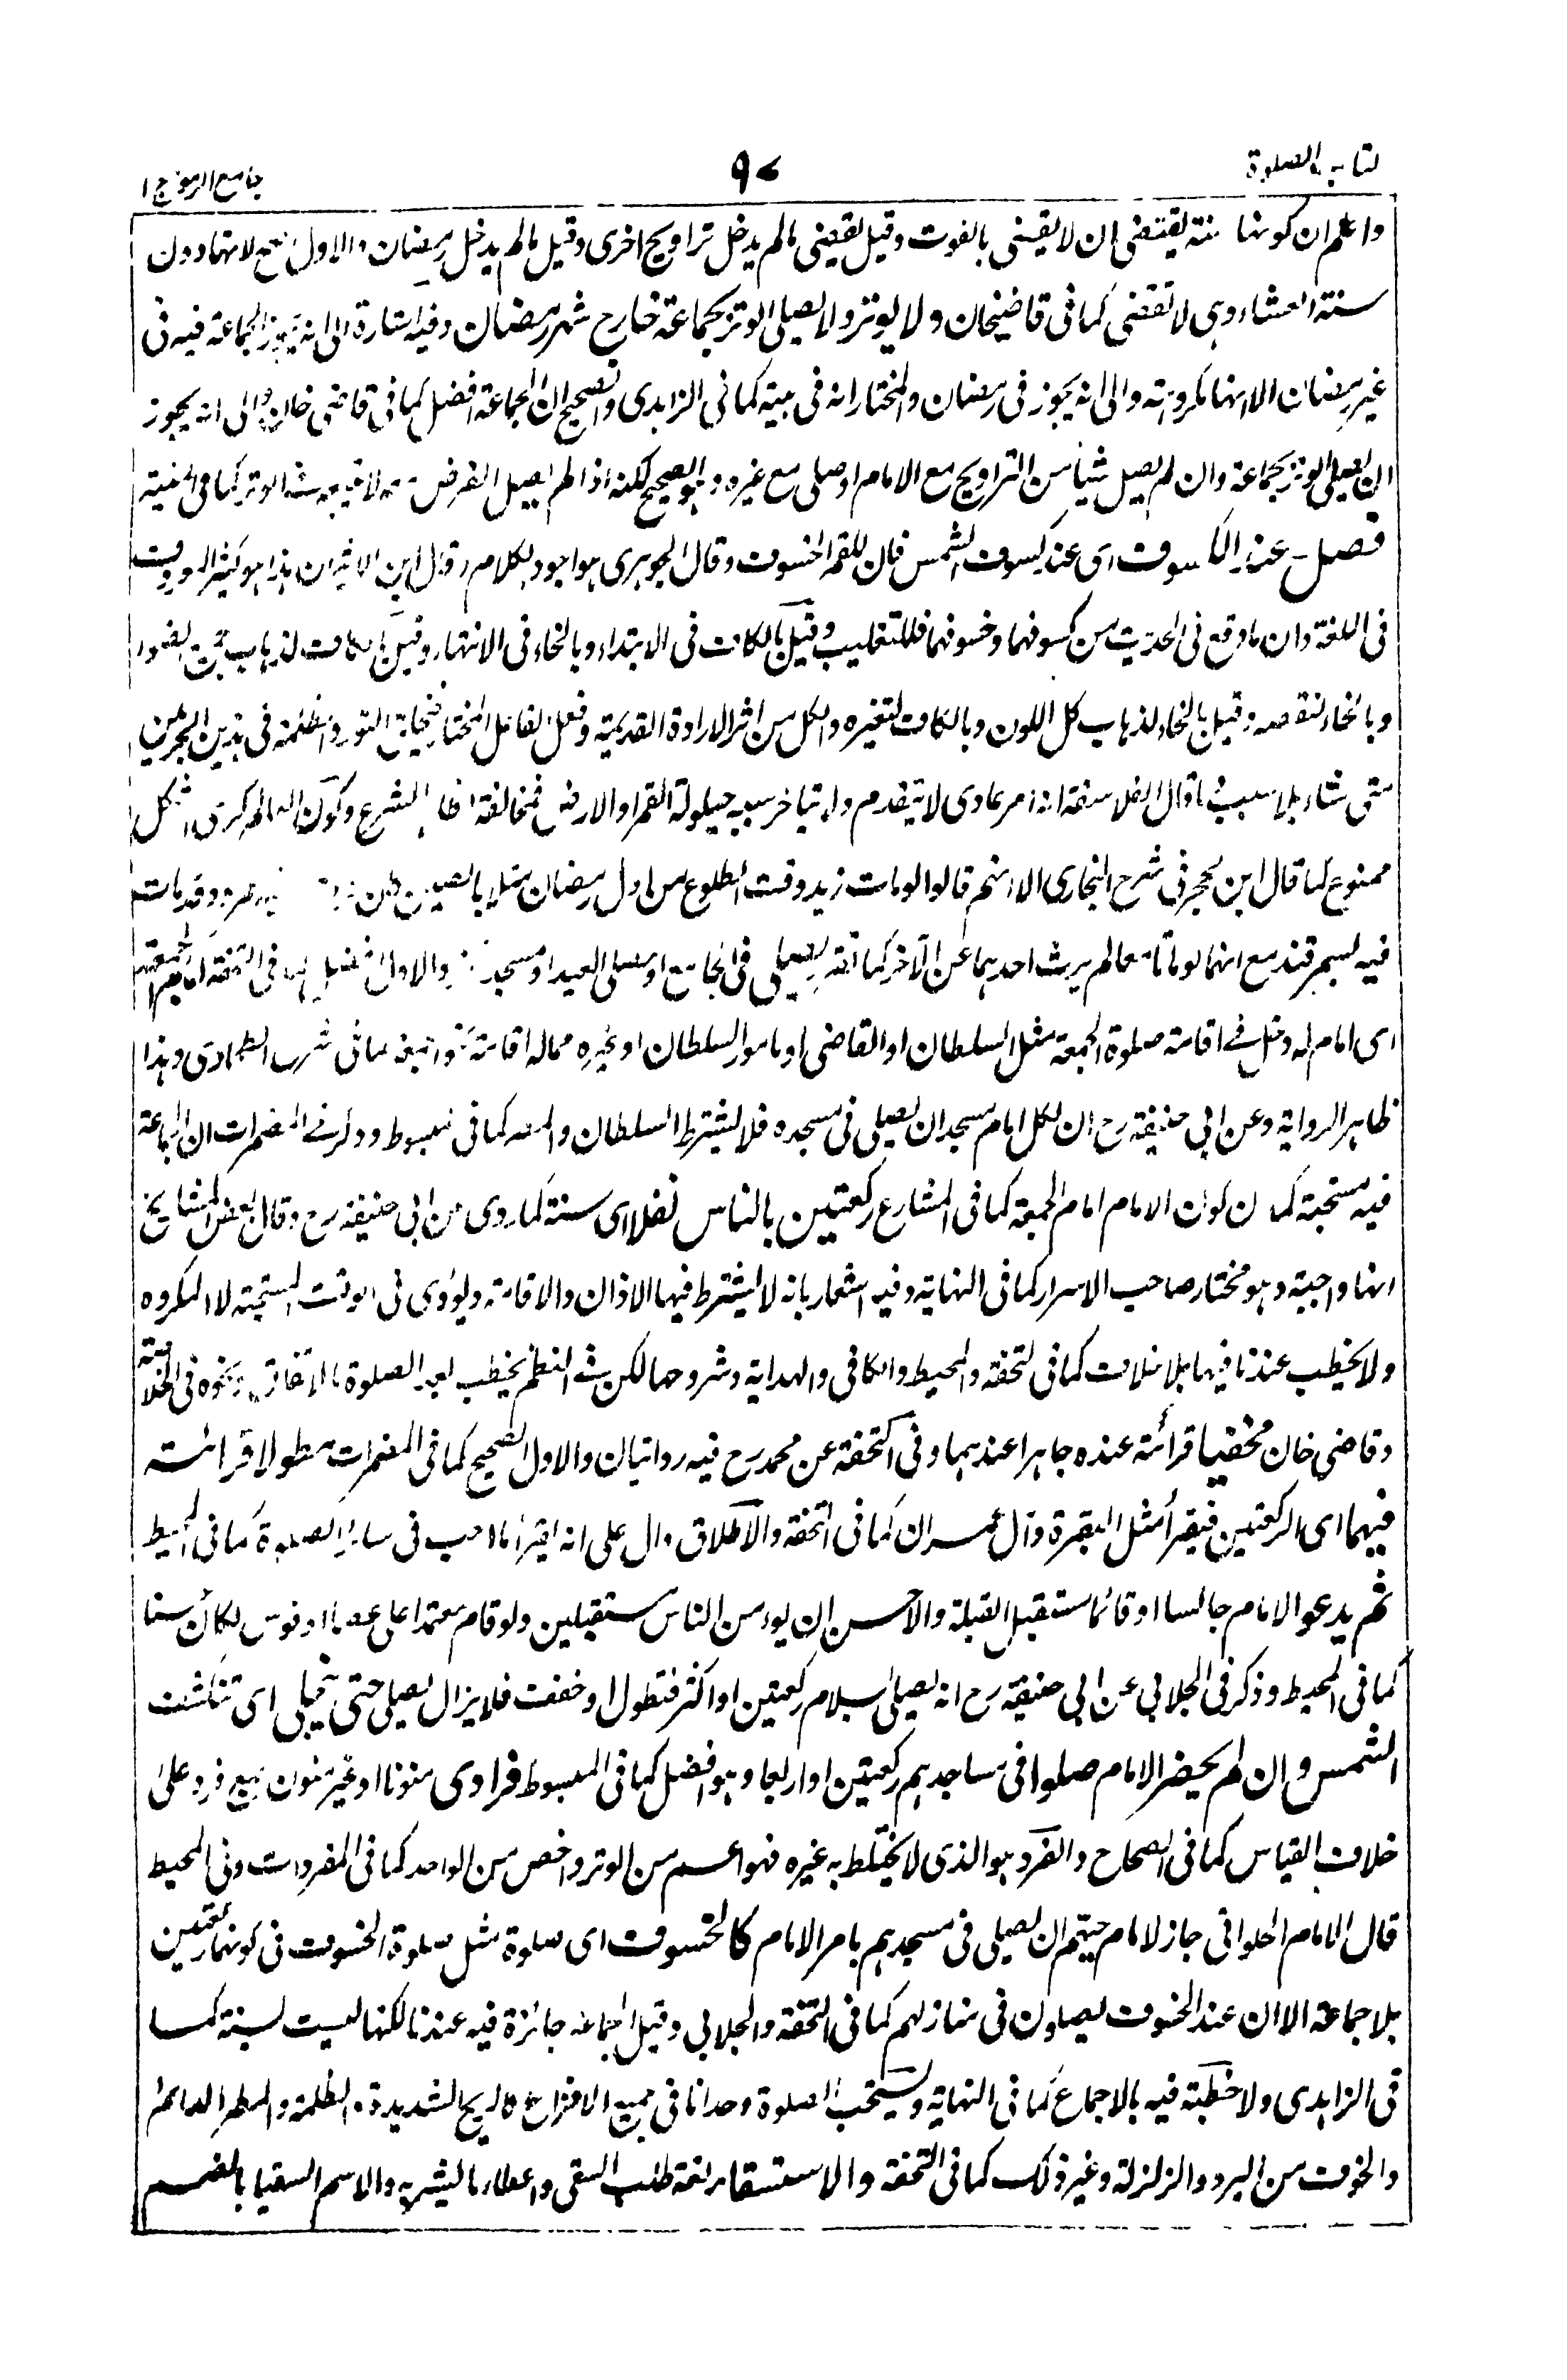 كتاب الصلوة
٩٧
جامع الرموز ج ١
واعلم ان كونها سنة يقتضى ان لا يقضى بالفوت وقيل يقضى مالم يدخل تراويح اخرى وقيل مالم يدخل رمضان والاول اصح لانها دون
سنة العشاء وهى لا تقضى كما فى قاضيخان ولا يوتر ولا يصلى الوتر بجماعة خارج شهر رمضان وفيه اشارة الى انه يجوز الجماعة فيه فى
غير رمضان الا انها مكروهة والى انه يجوز فى رمضان والمختار انه فى بيته كما فى الزاهدى والصحيح ان الجماعة افضل كما فى قاضى خان والى انه يجوز
ان يصلى الوتر بجماعة وان لم يصل شيئا من التراويح مع الامام او صلى مع غيره وهو الصحيح لكنه اذا لم يصل الفرض معه لا يتبعه فى الوتر كما فى المنية
فصل عند الكسوف اى عند كسوف الشمس فان للقمر الخسوف وقال الجوهرى هو اجود الكلام وقال ابن الاثير ان هذا هو كثير المعروف
فى اللغة وان ما وقع فى الحديث من كسوفهما وخسوفهما فللتغليب وقيل بالكاف فى الابتداء وبالخاء فى الانتهاء وقيل بالكاف لذهاب جميع الضوء
وبالخاء لنقصه وقيل بالخاء لذهاب كل اللون وبالكاف لتغيره والكل من اثر الارادة القديمة وفعل الفاعل المختار فيخلق النور والظلمة فى هذين الجرمين
متى شاء بلا سبب فما قال الفلاسفة انه امر عادى لا يتقدم ولا يتاخر سببه حيلولة القمر او الارض فمخالفة لظاهر الشرع وكون العالم كرى الشكل
ممنوع كما قال ابن حجر فى شرح البخارى الا انهم قالوا لو مات زيد وقت الطلوع من اول رمضان مثلا بالصين كان وقد مات
فيه بسمرقند مع انهما لو ماتا معا لم يرث احدهما عن الآخر كما تقرر يصلى فى الجامع او مصلى العيد او مسجد والاول افضل كما فى التحفة امام الجمعة
اى امام له دخل فى اقامة صلوة الجمعة مثل السلطان او القاضى او مامور السلطان او غيره مما له اقامة كما فى شرح الطحاوى وهذا
ظاهر الرواية وعن ابى حنيفة رح ان لكل امام مسجد ان يصلى فى مسجده فلا يشترط السلطان والمصر كما فى المبسوط وذكر فى المضمرات ان الجماعة
فيه مستحبة كما ان كون الامام امام الجمعة كما فى المشارع ركعتين بالناس نفلا اى سنة كما روى عن ابى حنيفة رح وقال بعض المشايخ
انها واجبة وهو مختار صاحب الاسرار كما فى النهاية وفيه اشعار بانه لا يشترط فيها الاذان والاقامة ويؤدى فى الوقت المستحبة لا المكروه
ولا يخطب عندنا فيها بلا خلاف كما فى التحفة والمحيط والكافى والهداية وشروحها لكن فى النظم يخطب بعد الصلوة بالاتفاق ونحوه فى الخلاصة
وقاضى خان مخفيا قرائته عنده جاهرا عندهما وفى التحفة عن محمد رح فيه روايتان والاول الصحيح كما فى المضمرات مطولا قرائته
فيهما اى الركعتين فيقرأ مثل البقرة وآل عمران كما فى التحفة والاطلاق دال على انه يقرأ ما احب فى سائر الصلوة كما فى المحيط
ثم يدعو الامام جالسا او قائما مستقبل القبلة والاحسن ان يؤمن الناس مستقبلين ولو قام معتمدا على عصا او قوس لكان حسنا
كما فى المحيط وذكر فى الجلابى عن ابى حنيفة رح انه يصلى بسلام ركعتين او اكثر فتطول او خففت فلا يزال يصلى حتى تنجلى اى تنكشف
الشمس وان لم يحضر الامام صلوا فى مساجدهم ركعتين او اربعا وهو افضل كما فى المبسوط فرادى منونا او غير منون جمع فرد على
خلاف القياس كما فى الصحاح والفرد هو الذى لا يختلط به غيره فهو اعم من الوتر واخص من الواحد كما فى المفردات وفى المحيط
قال الامام الحلوانى جاز لامام حيهم ان يصلى فى مسجدهم بامر الامام كالخسوف اى صلوة مثل صلوة الخسوف فى كونها ركعتين
بلا جماعة الا ان عند الخسوف يصلون فى منازلهم كما فى التحفة والجلابى وقيل الجماعة جائزة فيه عندنا لكنها ليست بسنة كما
فى الزاهدى ولا خطبة فيه بالاجماع كما فى النهاية ويستحب الصلوة وحدانا فى جميع الافزاع كالريح الشديدة والظلمة والمطر الدائم
والخوف من البرد والزلزلة وغير ذلك كما فى التحفة والاستسقاء لغة طلب السقى واعطاء ما يشربه والاسم السقيا بالضم